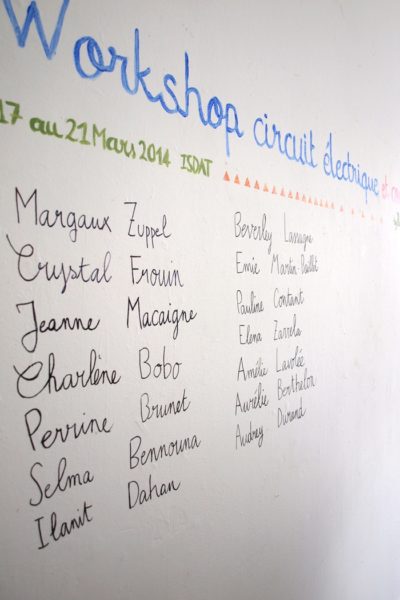 Workshop circuit électrique et
17 au 21 Mars 2014 ISDAT
Margaux Zuppel
Crystal Frouin
Jeanne Macaigne
Charlène Bobo
Perrine Brunet
Selma Bennouna
Ilanit Dahan
Beverley
Emie Martin-Paillet
Pauline Contant
Elena Zarrela
Amélie Lavolée
Aurélie Berthelon
Audrey Durand